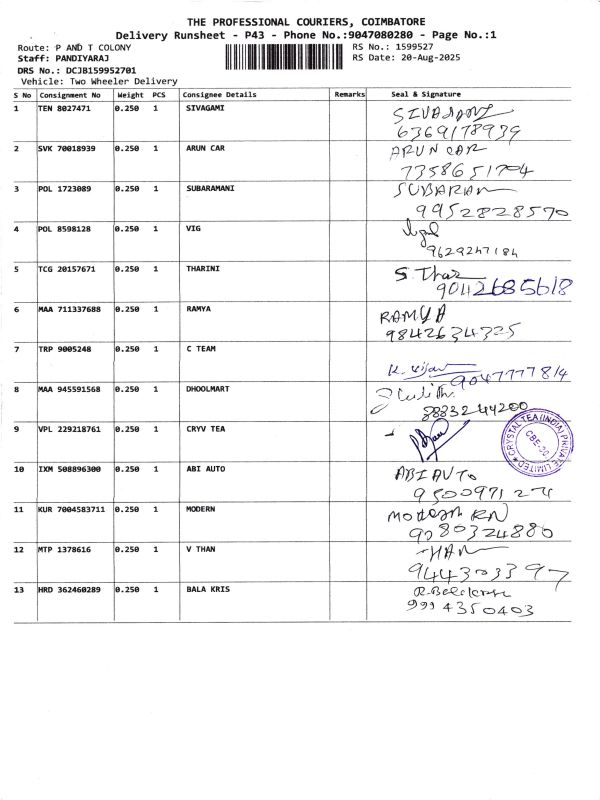 THE PROFESSIONAL COURIERS, COIMBATORE
Delivery Runsheet - P43 - Phone No.:9047080280 - Page No.:1
Route: P AND T COLONY RS No.: 1599527
Staff: PANDIYARAJ RS Date: 20-Aug-2025
DRS No.: DCJB159952701
Vehicle: Two Wheeler Delivery
S No Consignment No Weight PCS Consignee Details Remarks Seal & Signature
1 TEN 8027471 0.250 1 SIVAGAMI
6369178939
2 SVK 70018939 0.250 1 ARUN CAR ARUN CAR
7358651704
3 POL 1723089 0.250 1 SUBARAMANI
9952828570
4 POL 8598128 0.250 1 VIG
9629247184
5 TCG 20157671 0.250 1 THARINI S. Thar
9042685618
6 MAA 711337688 0.250 1 RAMYA RAMYA
9842634325
7 TRP 9005248 0.250 1 C TEAM
9047777814
8 MAA 945591568 0.250 1 DHOOLMART
8883244200
9 VPL 229218761 0.250 1 CRYV TEA
CRYSTAL TEA (INDIA) PRIVATE LIMITED
10 IXM 508896300 0.250 1 ABI AUTO ABI AUTO
11 KUR 7004583711 0.250 1 MODERN
9080324880
12 MTP 1378616 0.250 1 V THAN
944303397
13 HRD 362460289 0.250 1 BALA KRIS
9994350403